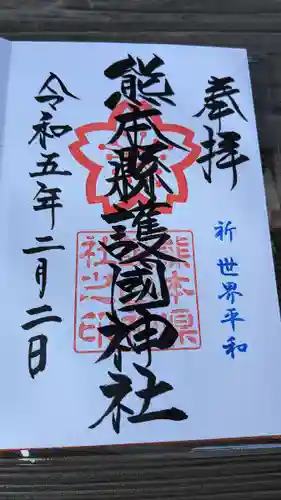 奉拝
祈 世界平和
熊本縣護國神社
熊本県
社之印
令和五年二月二日